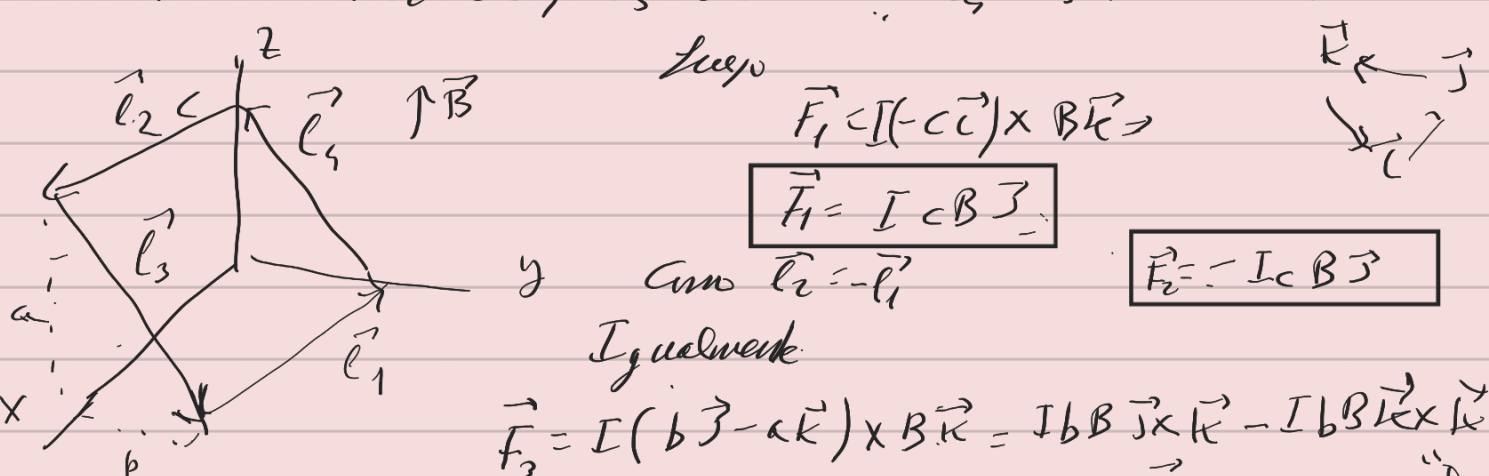 Z
l⃗₂ c l⃗₄ ↑B⃗
l⃗₃
a
y
l⃗₁
X
b
Luego
k⃗ j⃗
i⃗
F⃗₁ = I(-c i⃗) × B k⃗ ⇒
F⃗₁ = I c B j⃗
Como l⃗₂ = -l⃗₁
F⃗₂ = - I c B j⃗
Igualmente
F⃗₃ = I(b j⃗ - a k⃗) × B k⃗ = I b B j⃗ × k⃗ - I b B k⃗ × k⃗